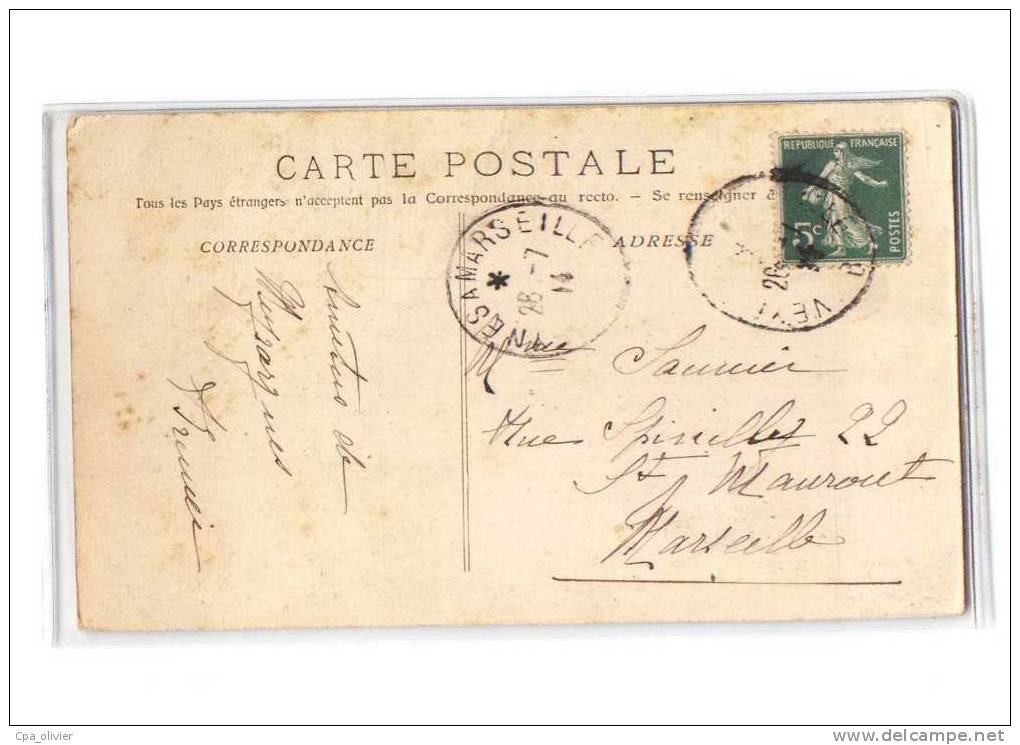 CARTE POSTALE
Tous les Pays étrangers n'acceptent pas la Correspondance au recto. - Se renseigner à
CORRESPONDANCE
ADRESSE
REPUBLIQUE FRANÇAISE
5c
POSTES
MARSEILLE
26 -7
14
26
VEY
Amitiés de
Meyrargues
Mme Saunier
Rue Spinelly 22
St Mauront
Marseille
Cpa_olivier
http://www.delcampe.net